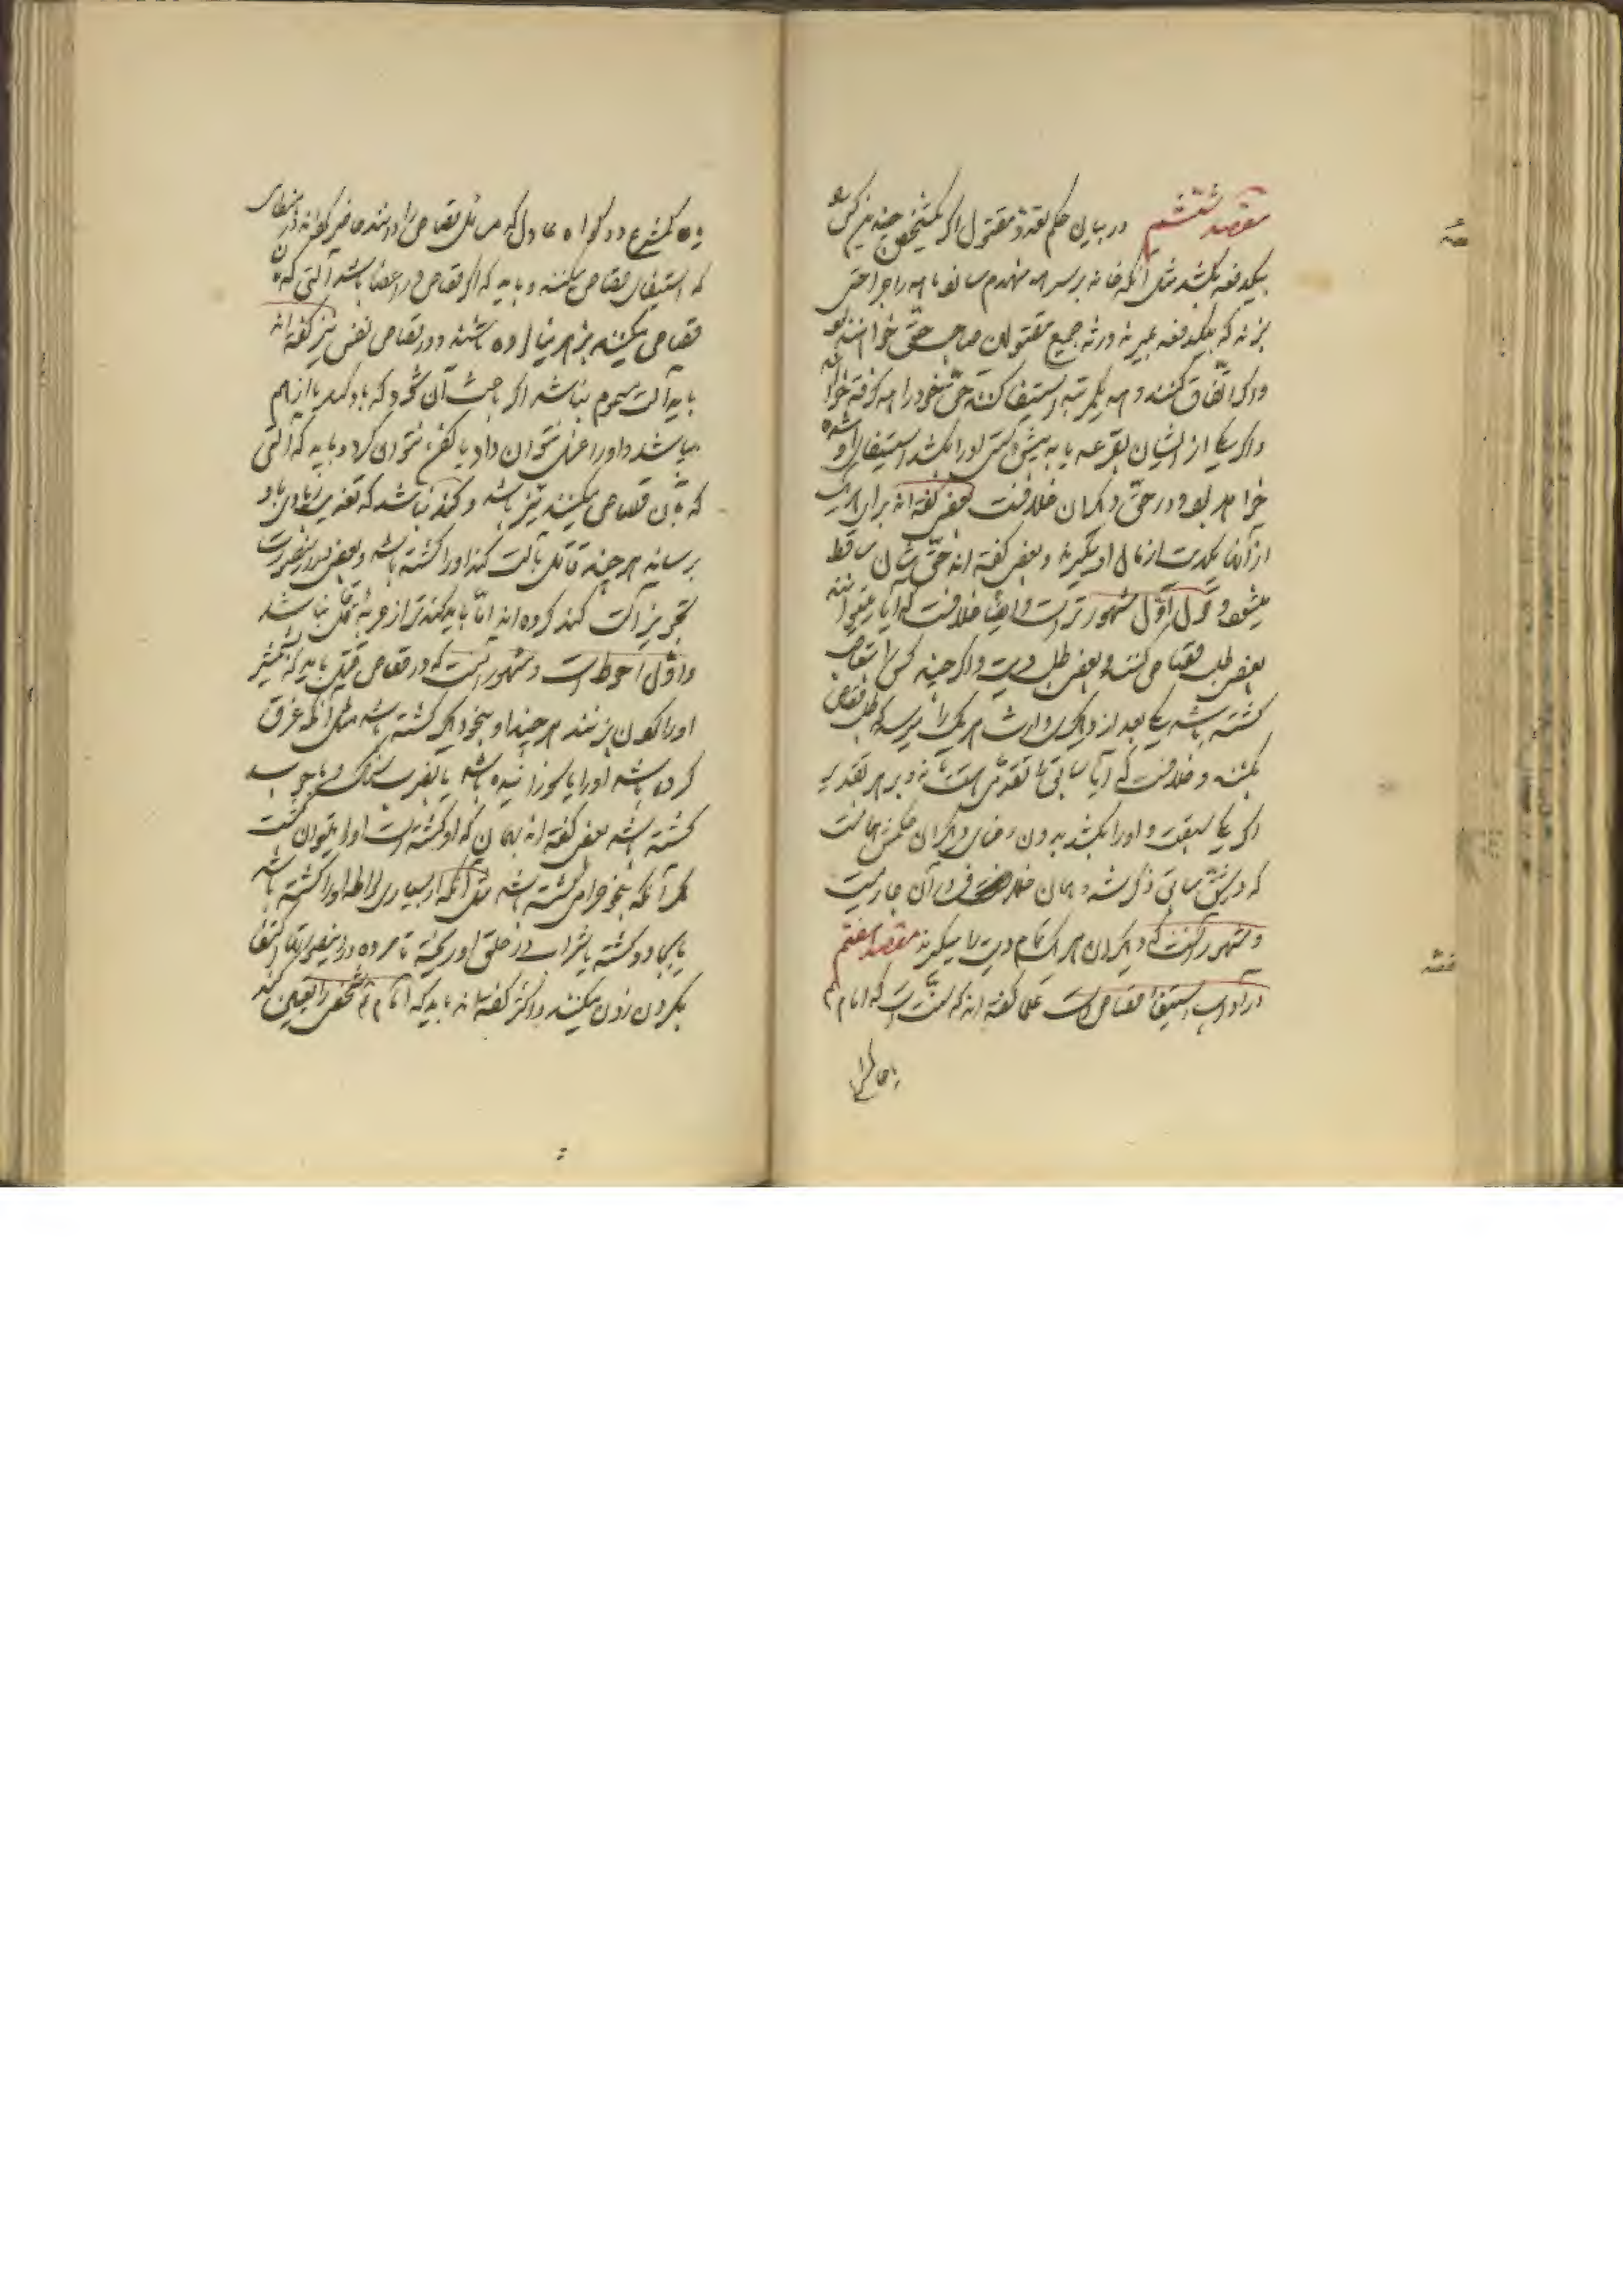 مقصد ششم در بیان حکم تعدد مقتول اگر یکشخص چندین کس را
بیکدفعه بکشد مثل آنکه خانه بر سر همه منهدم سازد یا همه را جراحتی
بزند که بیکدفعه بمیرند ورثه جمیع مقتولان صاحب حق خواهند بود
و اگر اتفاق کنند و همه یکمرتبه استیفا کنند حق خود را همه گرفته خواهند
و اگر یکی از ایشان بقرعه یا به پیش دستی او را بکشد استیفای او شده
خواهد بود و در حق دیگران خلافست بعضی گفته اند برای هر یک
از آنها یکدیت از مال او میگیرند و بعضی گفته اند حق ایشان ساقط
میشود و قول اول مشهورتر است و ایضا خلافست که آیا میتوانند
بعضی طلب قصاص کنند و بعضی طلب دیت و اگر چند کس را بتعاقب
کشته باشد یکی بعد از دیگری وارث هر یک را میرسد که طلب قصاص
بکنند و خلافست که آیا سابق را تقدمی هست یا نه و بر هر تقدیر
اگر یکی سبقت و او را بکشد بدون رضای دیگران حکمش همانست
که در شق سابق ذکر شد و همان خلاف در آن جاریست
و مشهور آنست که دیگران هر یک تمام دیت را میگیرند مقصد هفتم
در آداب استیفاء قصاص است علما گفته اند که سنت است که امام
یا حاکم
دو گواه عادل که مسائل قصاص را دانند حاضر گرداند در هنگامی
که استیفای قصاص میکنند و باید که اگر قصاص در اعضا باشد آلتی که بآن
قصاص میکنند بزهر نیالوده باشند و در قصاص نفس نیز گفته اند
باید آلت مسموم نباشد اگر باعث آن شود که بدنش از هم
بپاشد و او را غسل نتوان داد یا کفن نتوان کرد و باید که آلتی
که بآن قصاص میکنند تیز باشد و کند نباشد که تعذیب زیادی باو
برساند هر چند قاتل بآلت کند او را کشته باشد و بعضی در اینصورت
تجویز آلت کند کرده اند اما باید کندتر از حربه قاتل نباشد
و اول احوط است و مشهور آنست که در قصاص قتل باید که بشمشیر
او را گردن بزنند هر چند او بنحو دیگر کشته باشد مثل آنکه غرق
کرده باشد او را یا سوزانیده باشد یا بضرب سنگ و یا چوب
کشته باشد بعضی گفته اند بهمان نحو که او کشته است او را میتوان کشت
مگر آنکه بنحو حرامی کشته باشد مثل آنکه از بسیاری لواط او را کشته باشد
یا بجادو کشته یا شراب در حلق او ریخته تا مرده در اینصورتها اکتفا
بگردن زدن میکنند و اکثر گفته اند باید که امام شخصی را تعیین کند